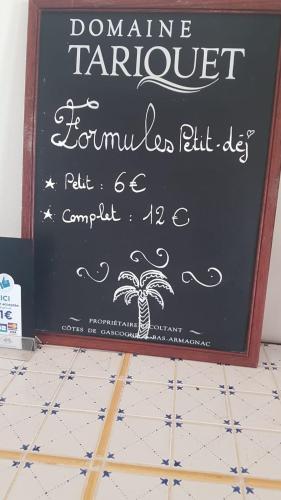 DOMAINE
TARIQUET
Formules Petit-déj
★ Petit : 6€
★ Complet : 12€
PROPRIÉTAIRE RÉCOLTANT
CÔTES DE GASCOGNE BAS-ARMAGNAC
ICI
1€